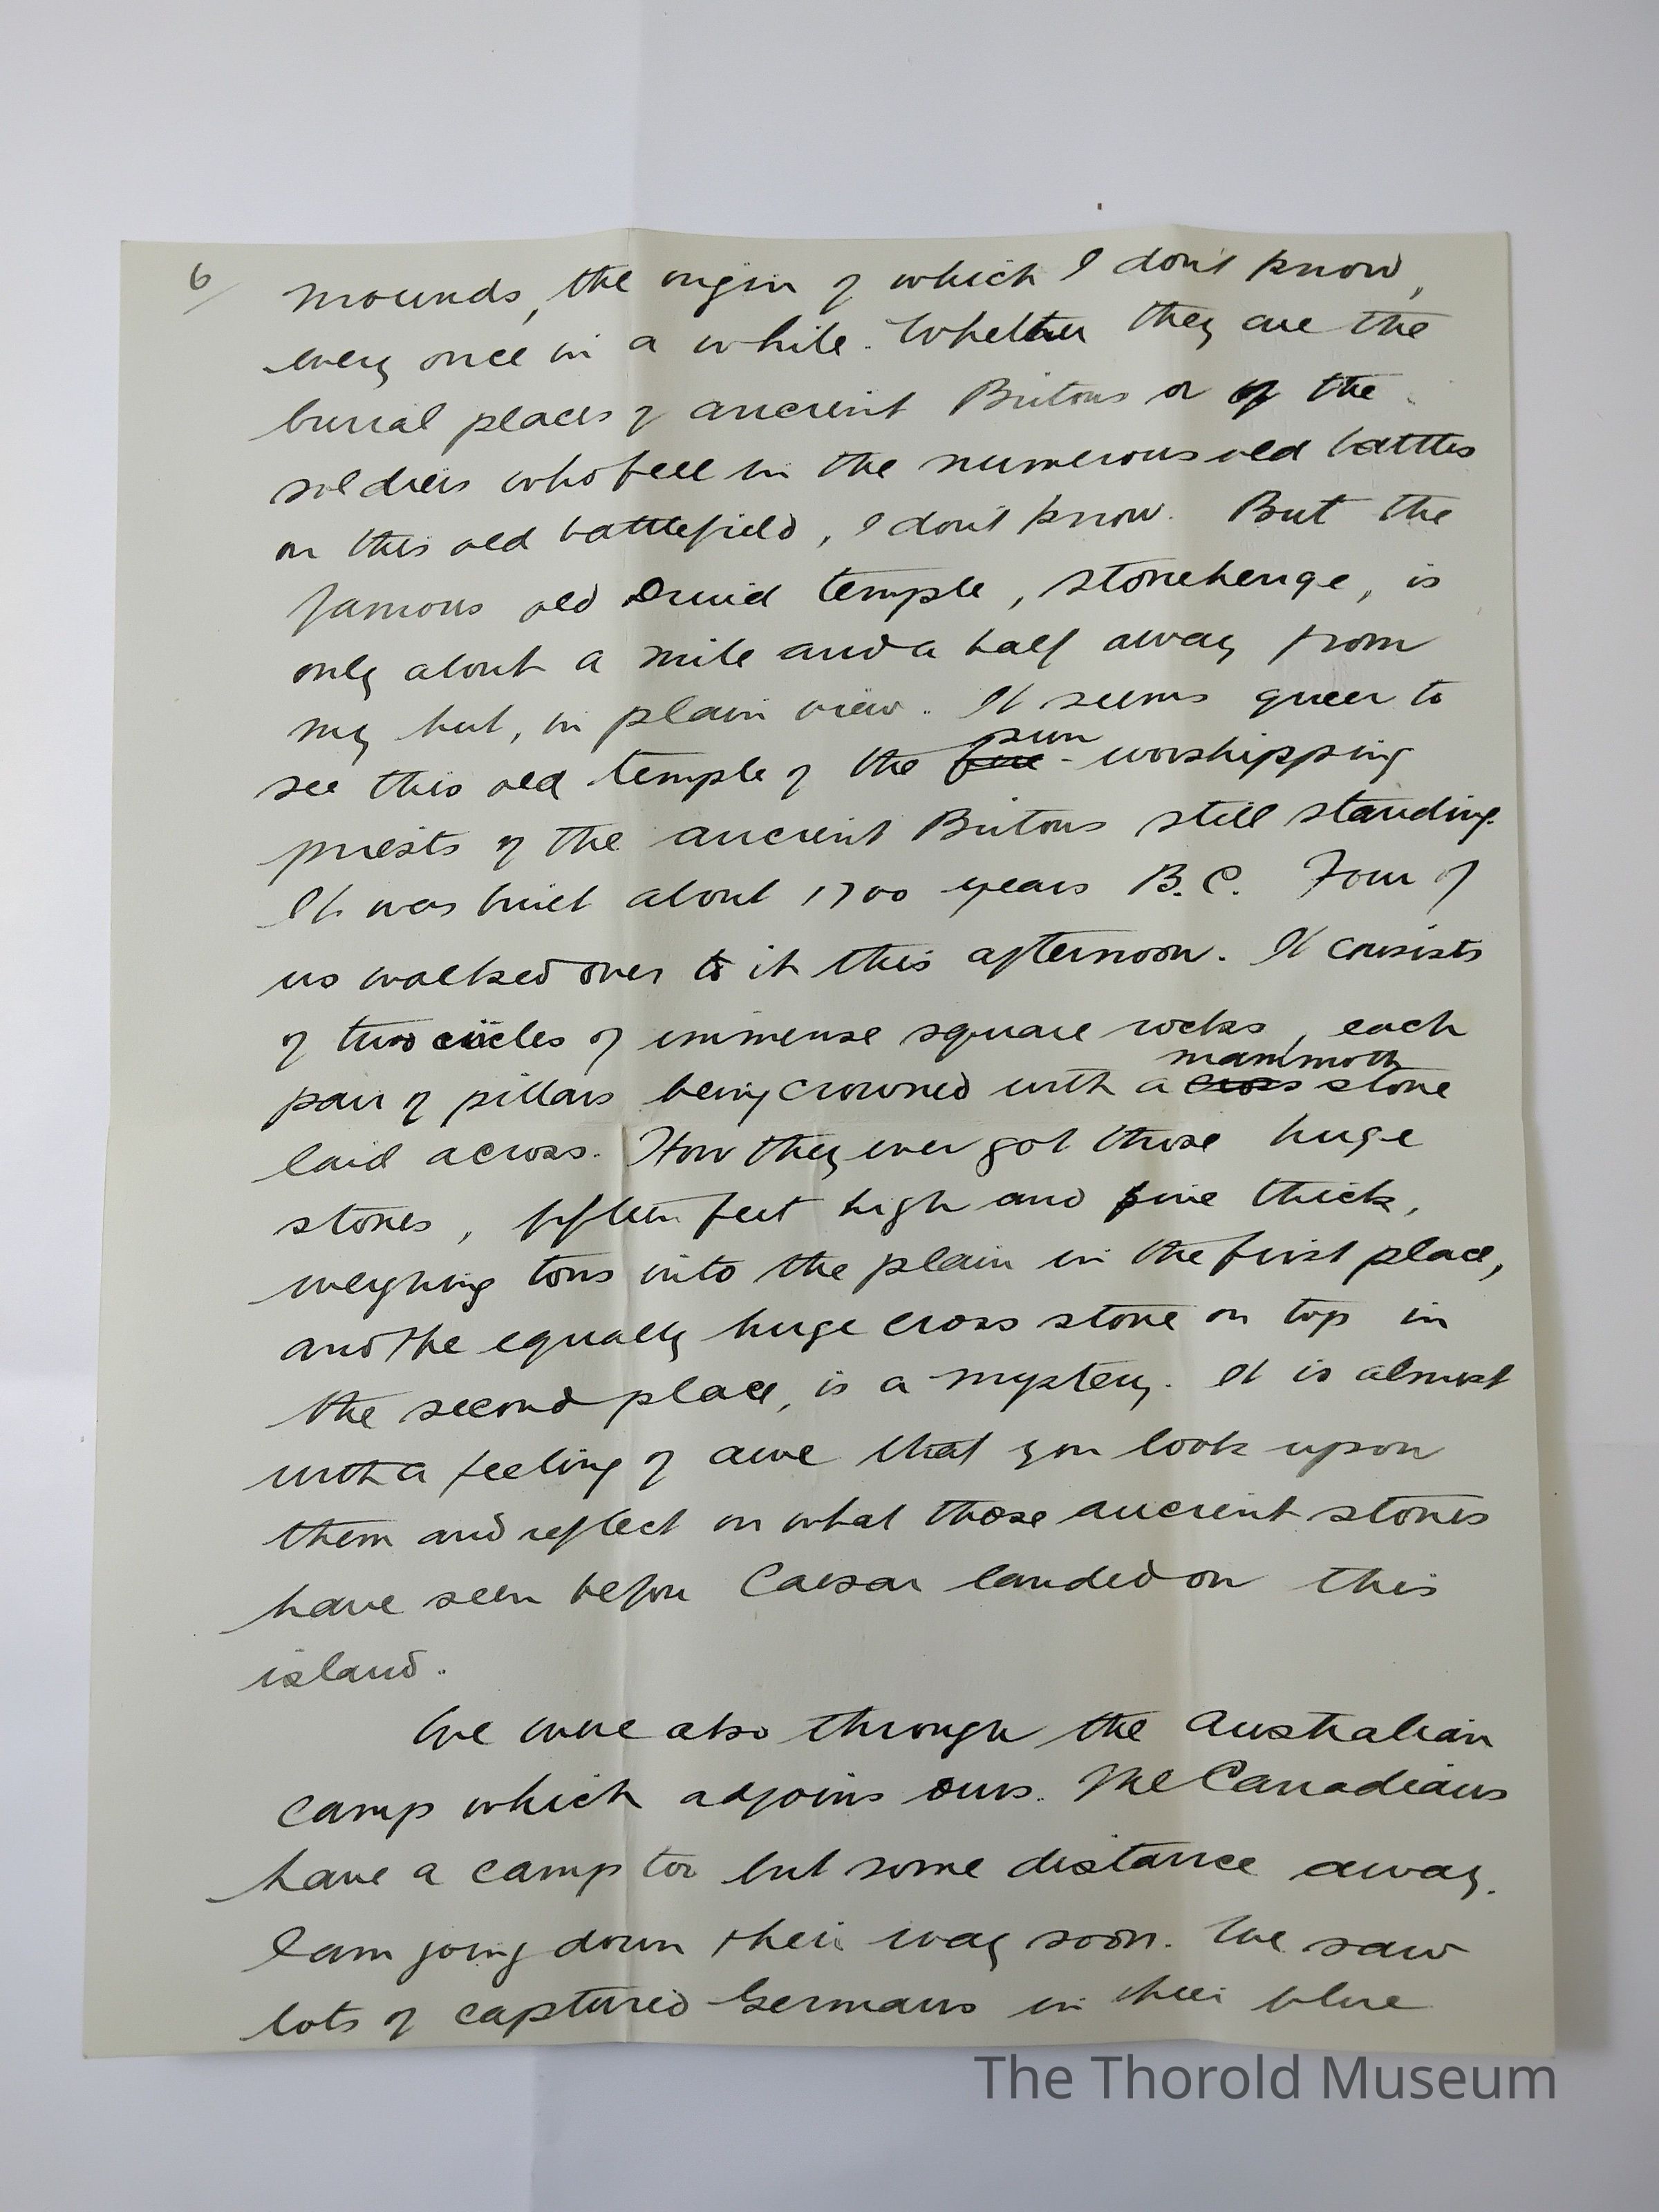 6/
mounds, the origin of which I don't know,
every once in a while. Whether they are the
burial places of ancient Britons or of the
soldiers who fell in the numerous old battles
on this old battlefield, I don't know. But the
famous old Druid temple, Stonehenge, is
only about a mile and a half away from
my hut, in plain view. It seems queer to
sun
see this old temple of the fire-worshipping
priests of the ancient Britons still standing.
It was built about 1700 years B.C. Four of
us walked over to it this afternoon. It consists
of two circles of immense square rocks, each
mammoth
pair of pillars being crowned with a cross stone
laid across. How they ever got those huge
stones, fifteen feet high and five thick,
weighing tons into the plain in the first place,
and the equally huge cross stone on top in
the second place, is a mystery. It is almost
with a feeling of awe that you look upon
them and reflect on what those ancient stones
have seen before Caesar landed on this
island.
We were also through the Australian
camp which adjoins ours. The Canadians
have a camp too but some distance away.
I am going down their way soon. We saw
lots of captured Germans in their blue
The Thorold Museum